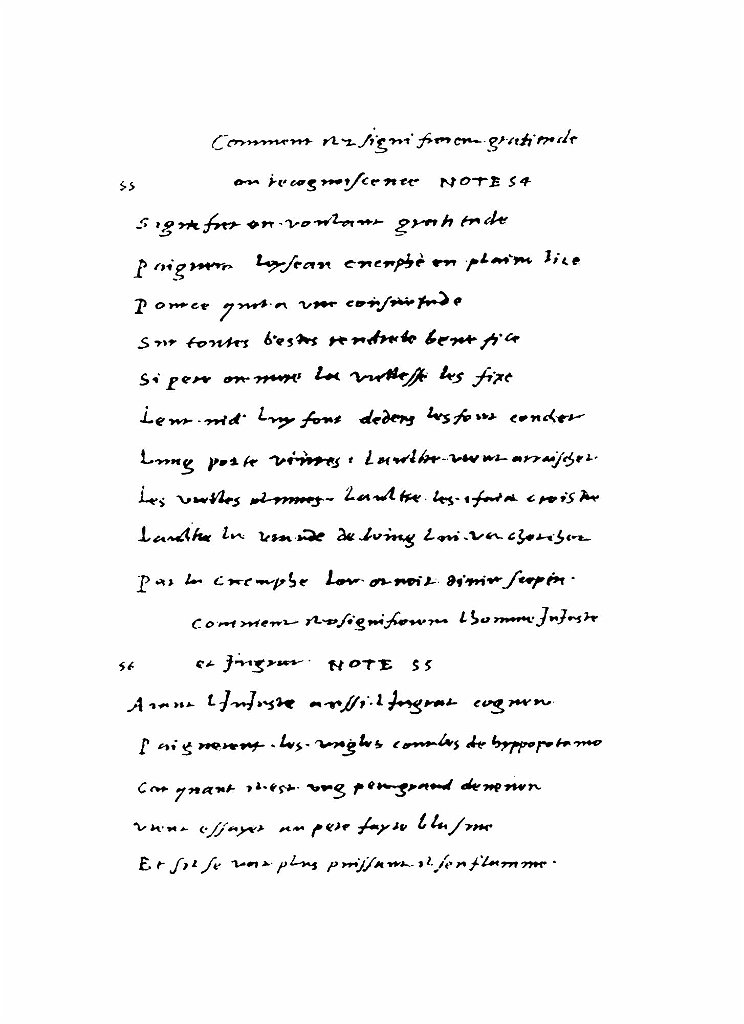 Comment ilz signifioient gratitude
55 ou recognoiscence NOTE 54
Signifier on voulant gratitude
Paignoint loyseau cucuphe en plaine lice
Pource quil a une consuetude
Sur toutes bestes rendre le benefice
Si pere ou mere la viellesse les fixe
Leur nid luy font dedens les font coucher
Lung porte vivres laultre vient arracher
Les vielles plumes laultre les faict croistre
Laultre la viande de loing lui va chercher
Par la cucuphe lon ornoit divin sceptre
Comment ilz signifioient lhomme Injuste
56 et Ingrat NOTE 55
Avant lInjuste aussi lIngrat cogneu
Paignerent les ungles courbes de hyppopotamo
Car quant il est ung peu grand devenu
Vient essayer au pere fayre blasme
Et sil se voit plus puissant il senflamme